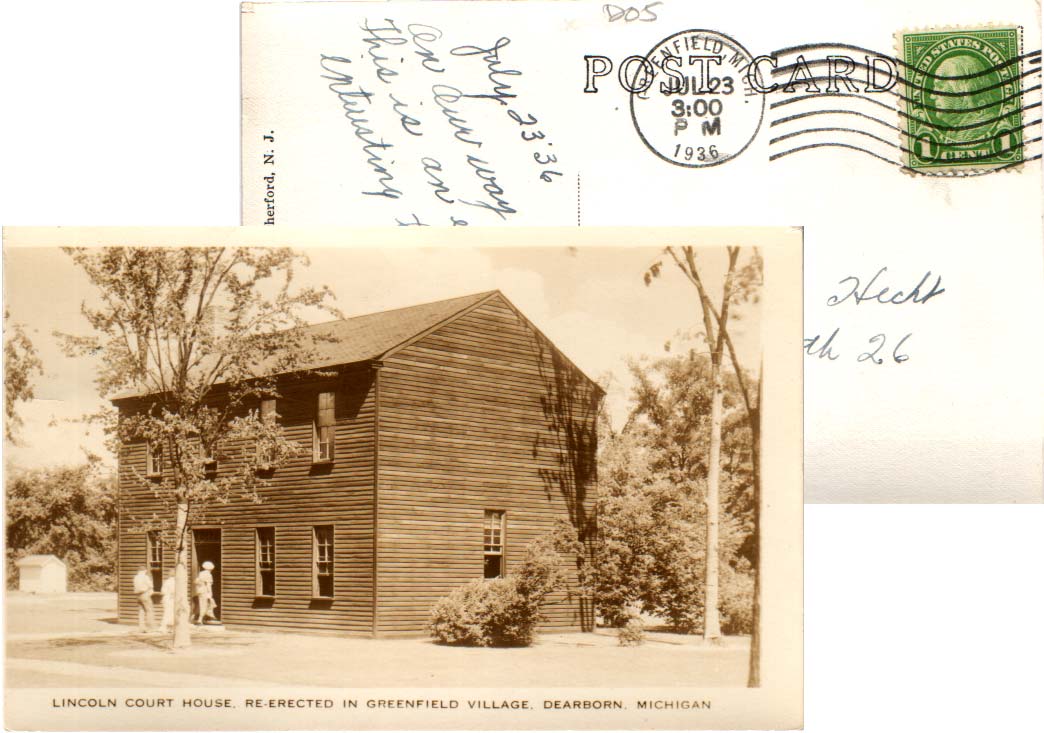 D05
POST CARD
GREENFIELD, MICH.
JUL 23
3:00
P M
1936
UNITED STATES POSTAGE
1 CENT 1
July, 23 '36
On Our way
This is an
intersting
herford, N. J.
Hecht
th 26
LINCOLN COURT HOUSE, RE-ERECTED IN GREENFIELD VILLAGE, DEARBORN, MICHIGAN